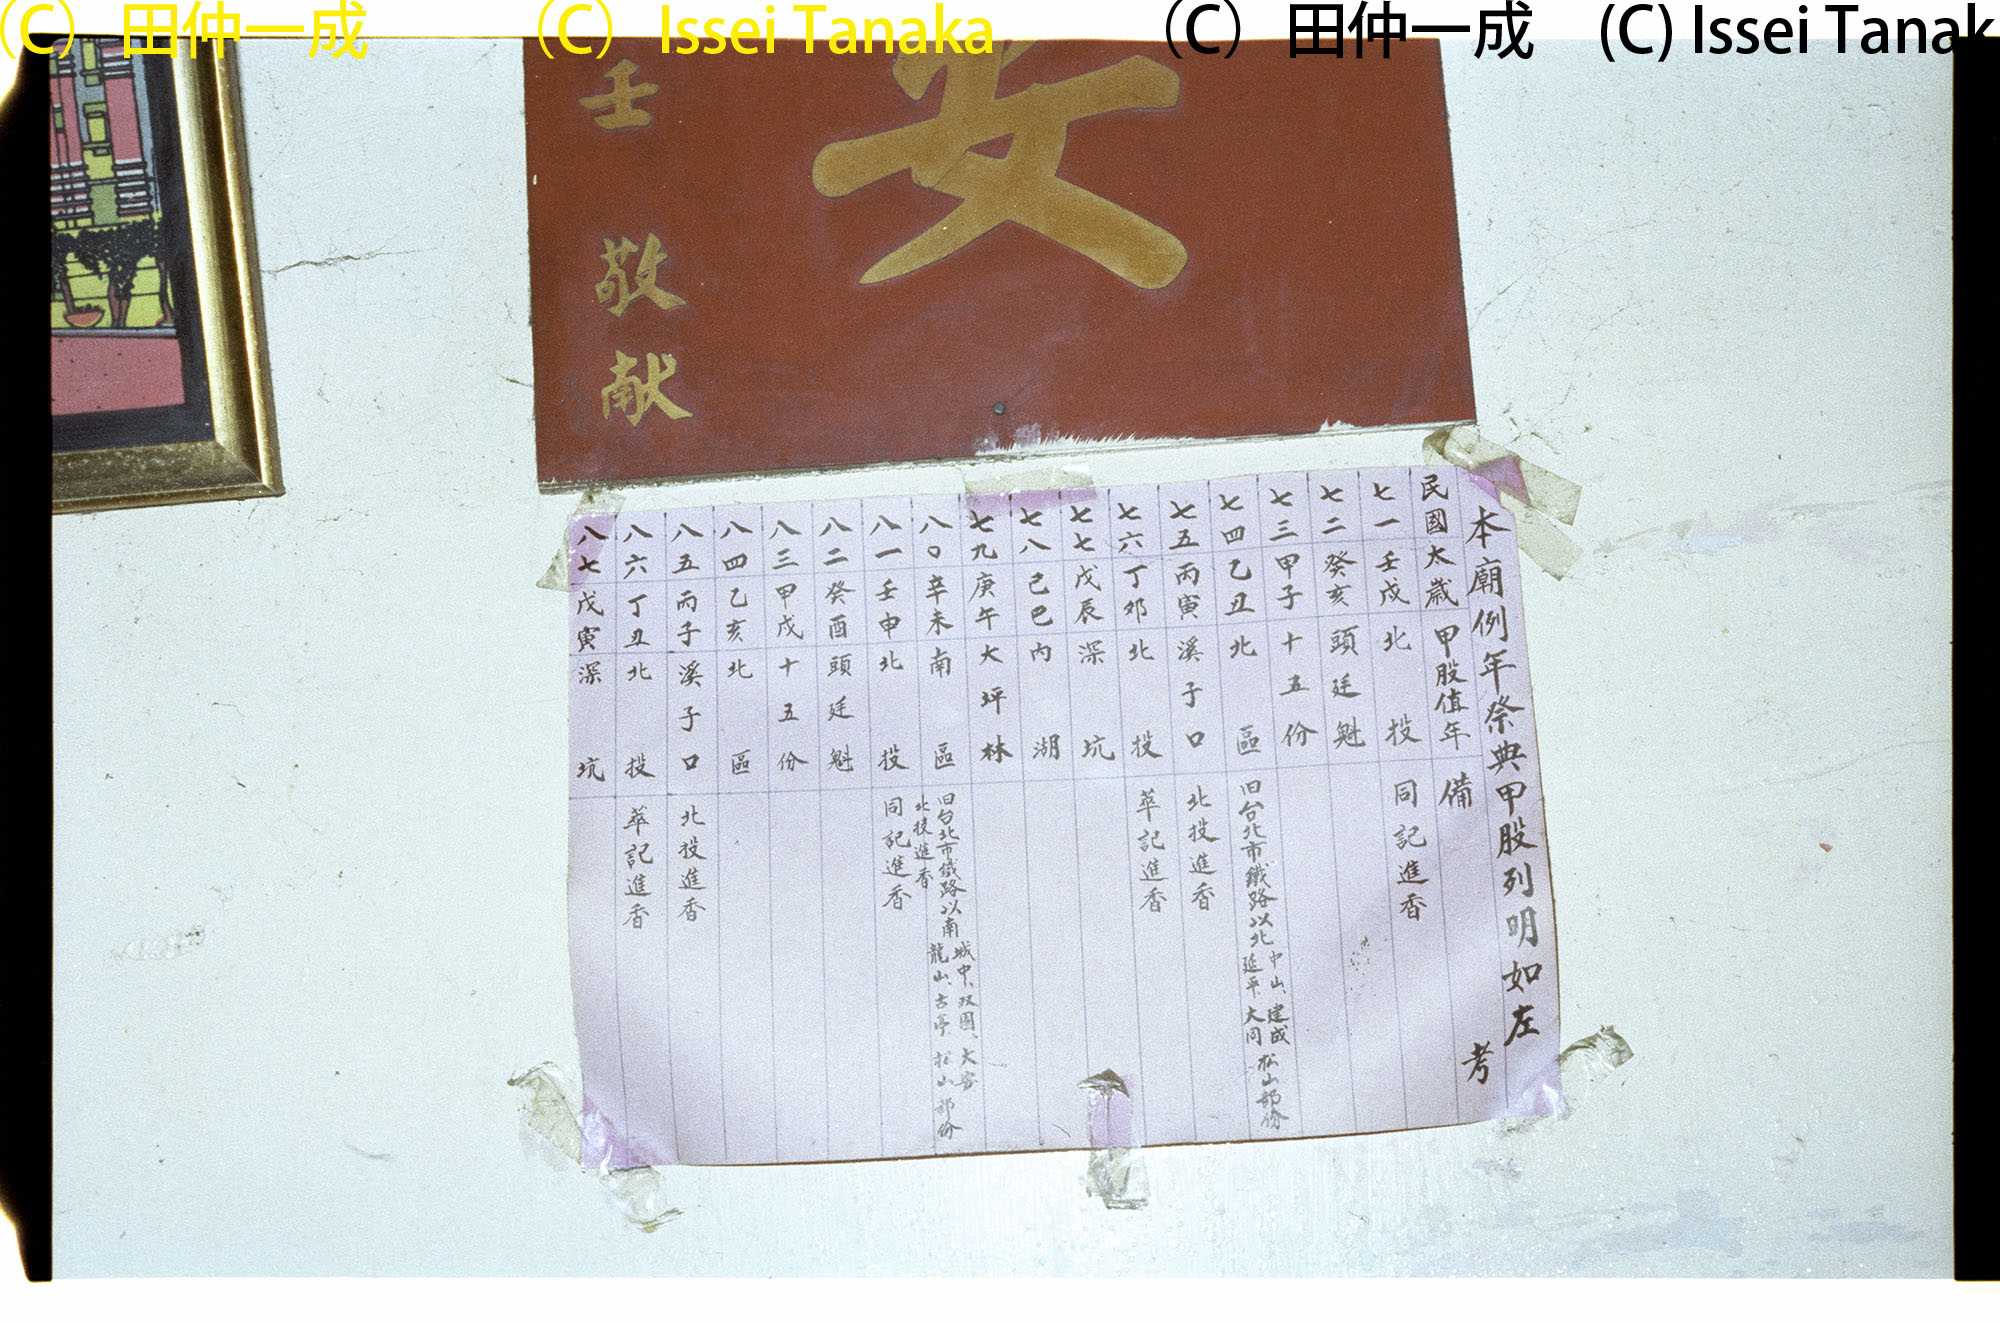 (C) 田仲一成
(C) Issei Tanaka
(C) 田仲一成
(C) Issei Tanak
安
壬 敬献
本廟例年祭典甲股列明如左
民國 太歲 甲股值年 備 考
七一 壬戌 北投 同記進香
七二 癸亥 頭廷魁
七三 甲子 十五份
七四 乙丑 北區 旧台北市鐵路以北 中山、建成 延平 大同 松山部份
七五 丙寅 溪子口 北投進香
七六 丁卯 北投 萃記進香
七七 戊辰 深坑
七八 己巳 内湖
七九 庚午 大坪林
八〇 辛未 南區 旧台北市鐵路以南 城中、双園、大安 龍山、古亭 松山部份
北投進香
八一 壬申 北投 同記進香
八二 癸酉 頭廷魁
八三 甲戌 十五份
八四 乙亥 北區
八五 丙子 溪子口 北投進香
八六 丁丑 北投 萃記進香
八七 戊寅 深坑